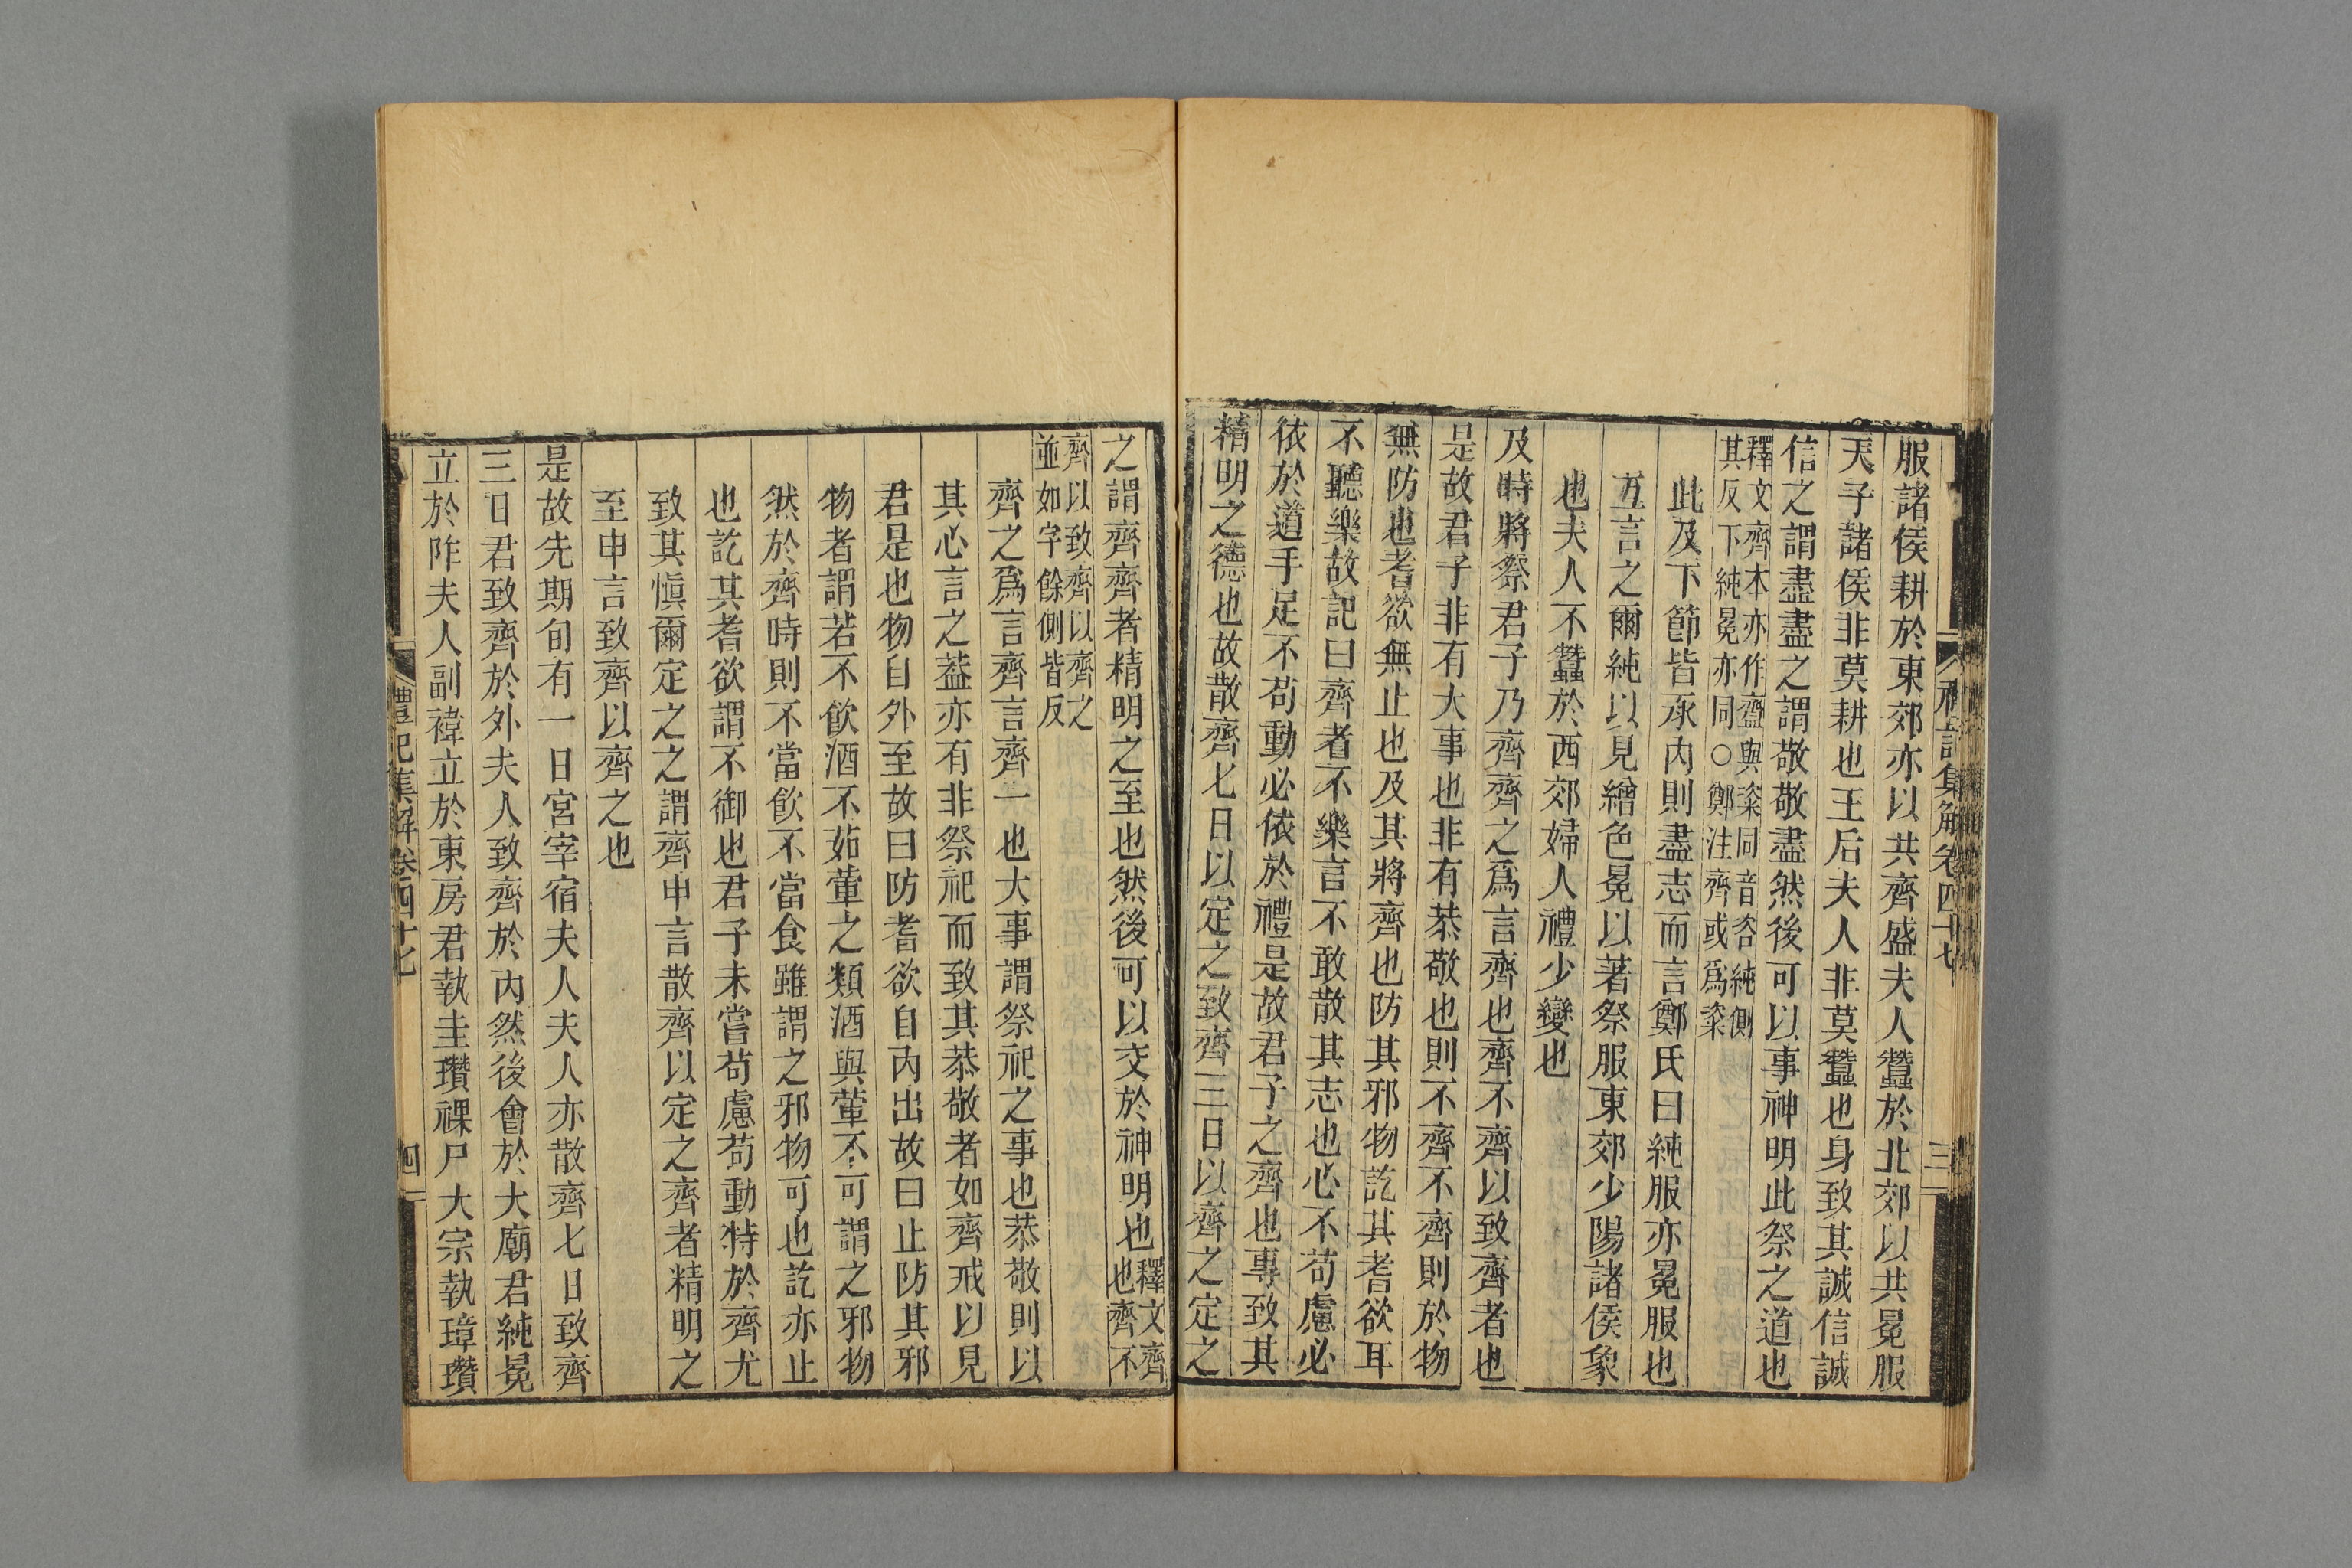 禮記集解卷四十七
三
服諸侯耕於東郊亦以共齊盛夫人蠶於北郊以共冕服
天子諸侯非莫耕也王后夫人非莫蠶也身致其誠信誠
信之謂盡盡之謂敬敬盡然後可以事神明此祭之道也
釋文齊本亦作齍與粢同音咨純側
其反下純冕亦同○鄭注齊或爲粢
此及下節皆承內則盡志而言鄭氏曰純服亦冕服也
互言之爾純以見繒色冕以著祭服東郊少陽諸侯象
也夫人不蠶於西郊婦人禮少變也
及時將祭君子乃齊齊之爲言齊也齊不齊以致齊者也
是故君子非有大事也非有恭敬也則不齊不齊則於物
無防也耆欲無止也及其將齊也防其邪物訖其耆欲耳
不聽樂故記曰齊者不樂言不敢散其志也心不苟慮必
依於道手足不苟動必依於禮是故君子之齊也專致其
精明之德也故散齊七日以定之致齊三日以齊之定之
之謂齊齊者精明之至也然後可以交於神明也
釋文齊
也齊不
齊以致齊以齊之
並如字餘側皆反
齊之爲言齊言齊一也大事謂祭祀之事也恭敬則以
其心言之葢亦有非祭祀而致其恭敬者如齊戒以見
君是也物自外至故曰防耆欲自內出故曰止防其邪
物者謂若不飲酒不茹葷之類酒與葷不可謂之邪物
然於齊時則不當飲不當食雖謂之邪物可也訖亦止
也訖其耆欲謂不御也君子未嘗苟慮苟動特於齊尤
致其愼爾定之之謂齊申言散齊以定之齊者精明之
至申言致齊以齊之也
是故先期旬有一日宮宰宿夫人夫人亦散齊七日致齊
三日君致齊於外夫人致齊於內然後會於大廟君純冕
立於阼夫人副褘立於東房君執圭瓚祼尸大宗執璋瓚
禮記集解卷四十七
四